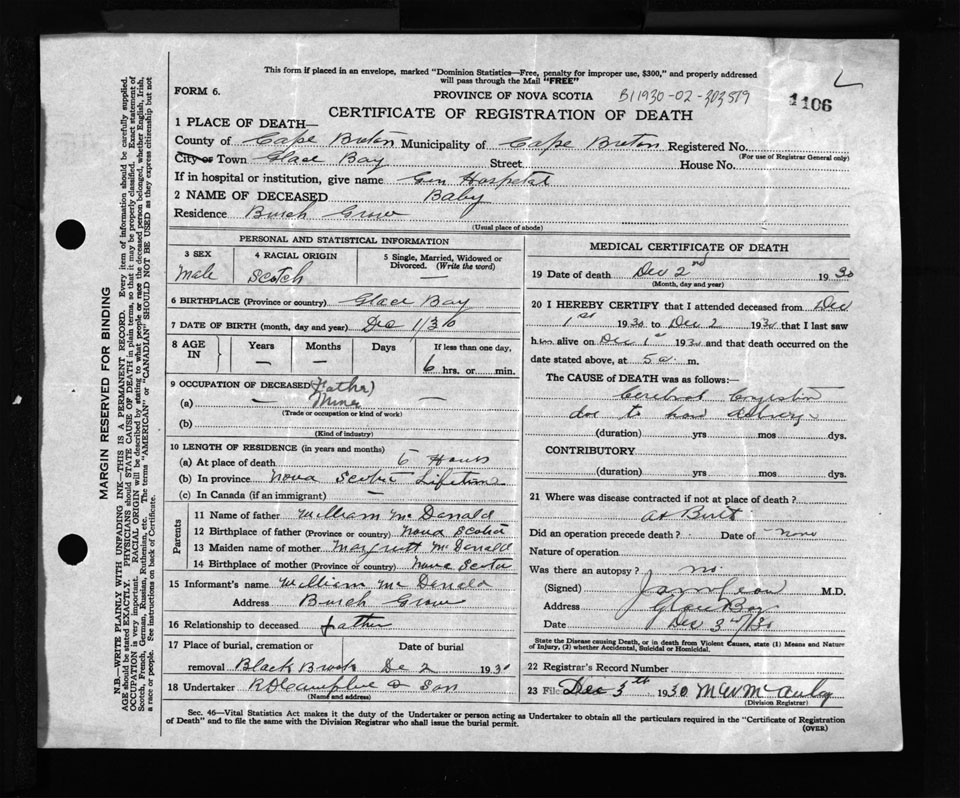 This form if placed in an envelope, marked "Dominion Statistics—Free, penalty for improper use, $300," and properly addressed
will pass through the Mail "FREE"
FORM 6.
PROVINCE OF NOVA SCOTIA
B11930-02-303579
1106
CERTIFICATE OF REGISTRATION OF DEATH
1 PLACE OF DEATH—
County of Cape Breton Municipality of Cape Breton Registered No.
(For use of Registrar General only)
City or Town Glace Bay Street House No.
If in hospital or institution, give name Gen Hospital
2 NAME OF DECEASED Baby
Residence Birch Grove
(Usual place of abode)
MARGIN RESERVED FOR BINDING
N.B.—WRITE PLAINLY WITH UNFADING INK—THIS IS A PERMANENT RECORD. Every item of information should be carefully supplied.
AGE should be stated EXACTLY. PHYSICIANS should STATE CAUSE OF DEATH in plain terms, so that it may be properly classified. Exact statement of
OCCUPATION is very important. RACIAL ORIGIN will be described by stating to what people or race the deceased person belonged, whether English, Irish,
Scotch, French, German, Russian, Ruthenian, etc. The terms "AMERICAN" or "CANADIAN" SHOULD NOT BE USED as they express citizenship but not
a race or people. See instructions on back of Certificate.
PERSONAL AND STATISTICAL INFORMATION
3 SEX
Male
4 RACIAL ORIGIN
Scotch
5 Single, Married, Widowed or
Divorced. (Write the word)
—
6 BIRTHPLACE (Province or country) Glace Bay
7 DATE OF BIRTH (month, day and year) Dec 1/30
8 AGE
IN
Years
—
Months
—
Days
If less than one day,
6 hrs. or min.
9 OCCUPATION OF DECEASED (Father)
(a) — Miner —
(Trade or occupation or kind of work)
(b)
(Kind of industry)
10 LENGTH OF RESIDENCE (in years and months)
(a) At place of death 6 Hours
(b) In province Nova Scotia Lifetime
(c) In Canada (if an immigrant) —
Parents
11 Name of father William McDonald
12 Birthplace of father (Province or country) Nova Scotia
13 Maiden name of mother Margrett McDonald
14 Birthplace of mother (Province or country) Nova Scotia
15 Informant's name William McDonald
Address Birch Grove
16 Relationship to deceased Father
17 Place of burial, cremation or Date of burial
removal Black Brook Dec 2 1930
18 Undertaker & Son
(Name and address)
MEDICAL CERTIFICATE OF DEATH
19 Date of death Dec 2nd 1930
(Month, day and year)
20 I HEREBY CERTIFY that I attended deceased from Dec
1st 1930 to Dec 2 1930 that I last saw
him alive on Dec 1st 1930 and that death occurred on the
date stated above, at 5 a. m.
The CAUSE OF DEATH was as follows:—
Cerebral Congestion
due to hard delivery
(duration) yrs mos dys.
CONTRIBUTORY
(duration) yrs mos dys.
21 Where was disease contracted if not at place of death?
at Birth
Did an operation precede death? Date of None
Nature of operation
Was there an autopsy? No
(Signed) M.D.
Address Glace Bay
Date Dec 3rd/30
State the Disease causing Death, or in death from Violent Causes, state (1) Means and Nature
of Injury, (2) whether Accidental, Suicidal or Homicidal.
22 Registrar's Record Number
23 File Dec 3th 1930
(Division Registrar)
Sec. 46—Vital Statistics Act makes it the duty of the Undertaker or person acting as Undertaker to obtain all the particulars required in the "Certificate of Registration
of Death" and to file the same with the Division Registrar who shall issue the burial permit.
(OVER)